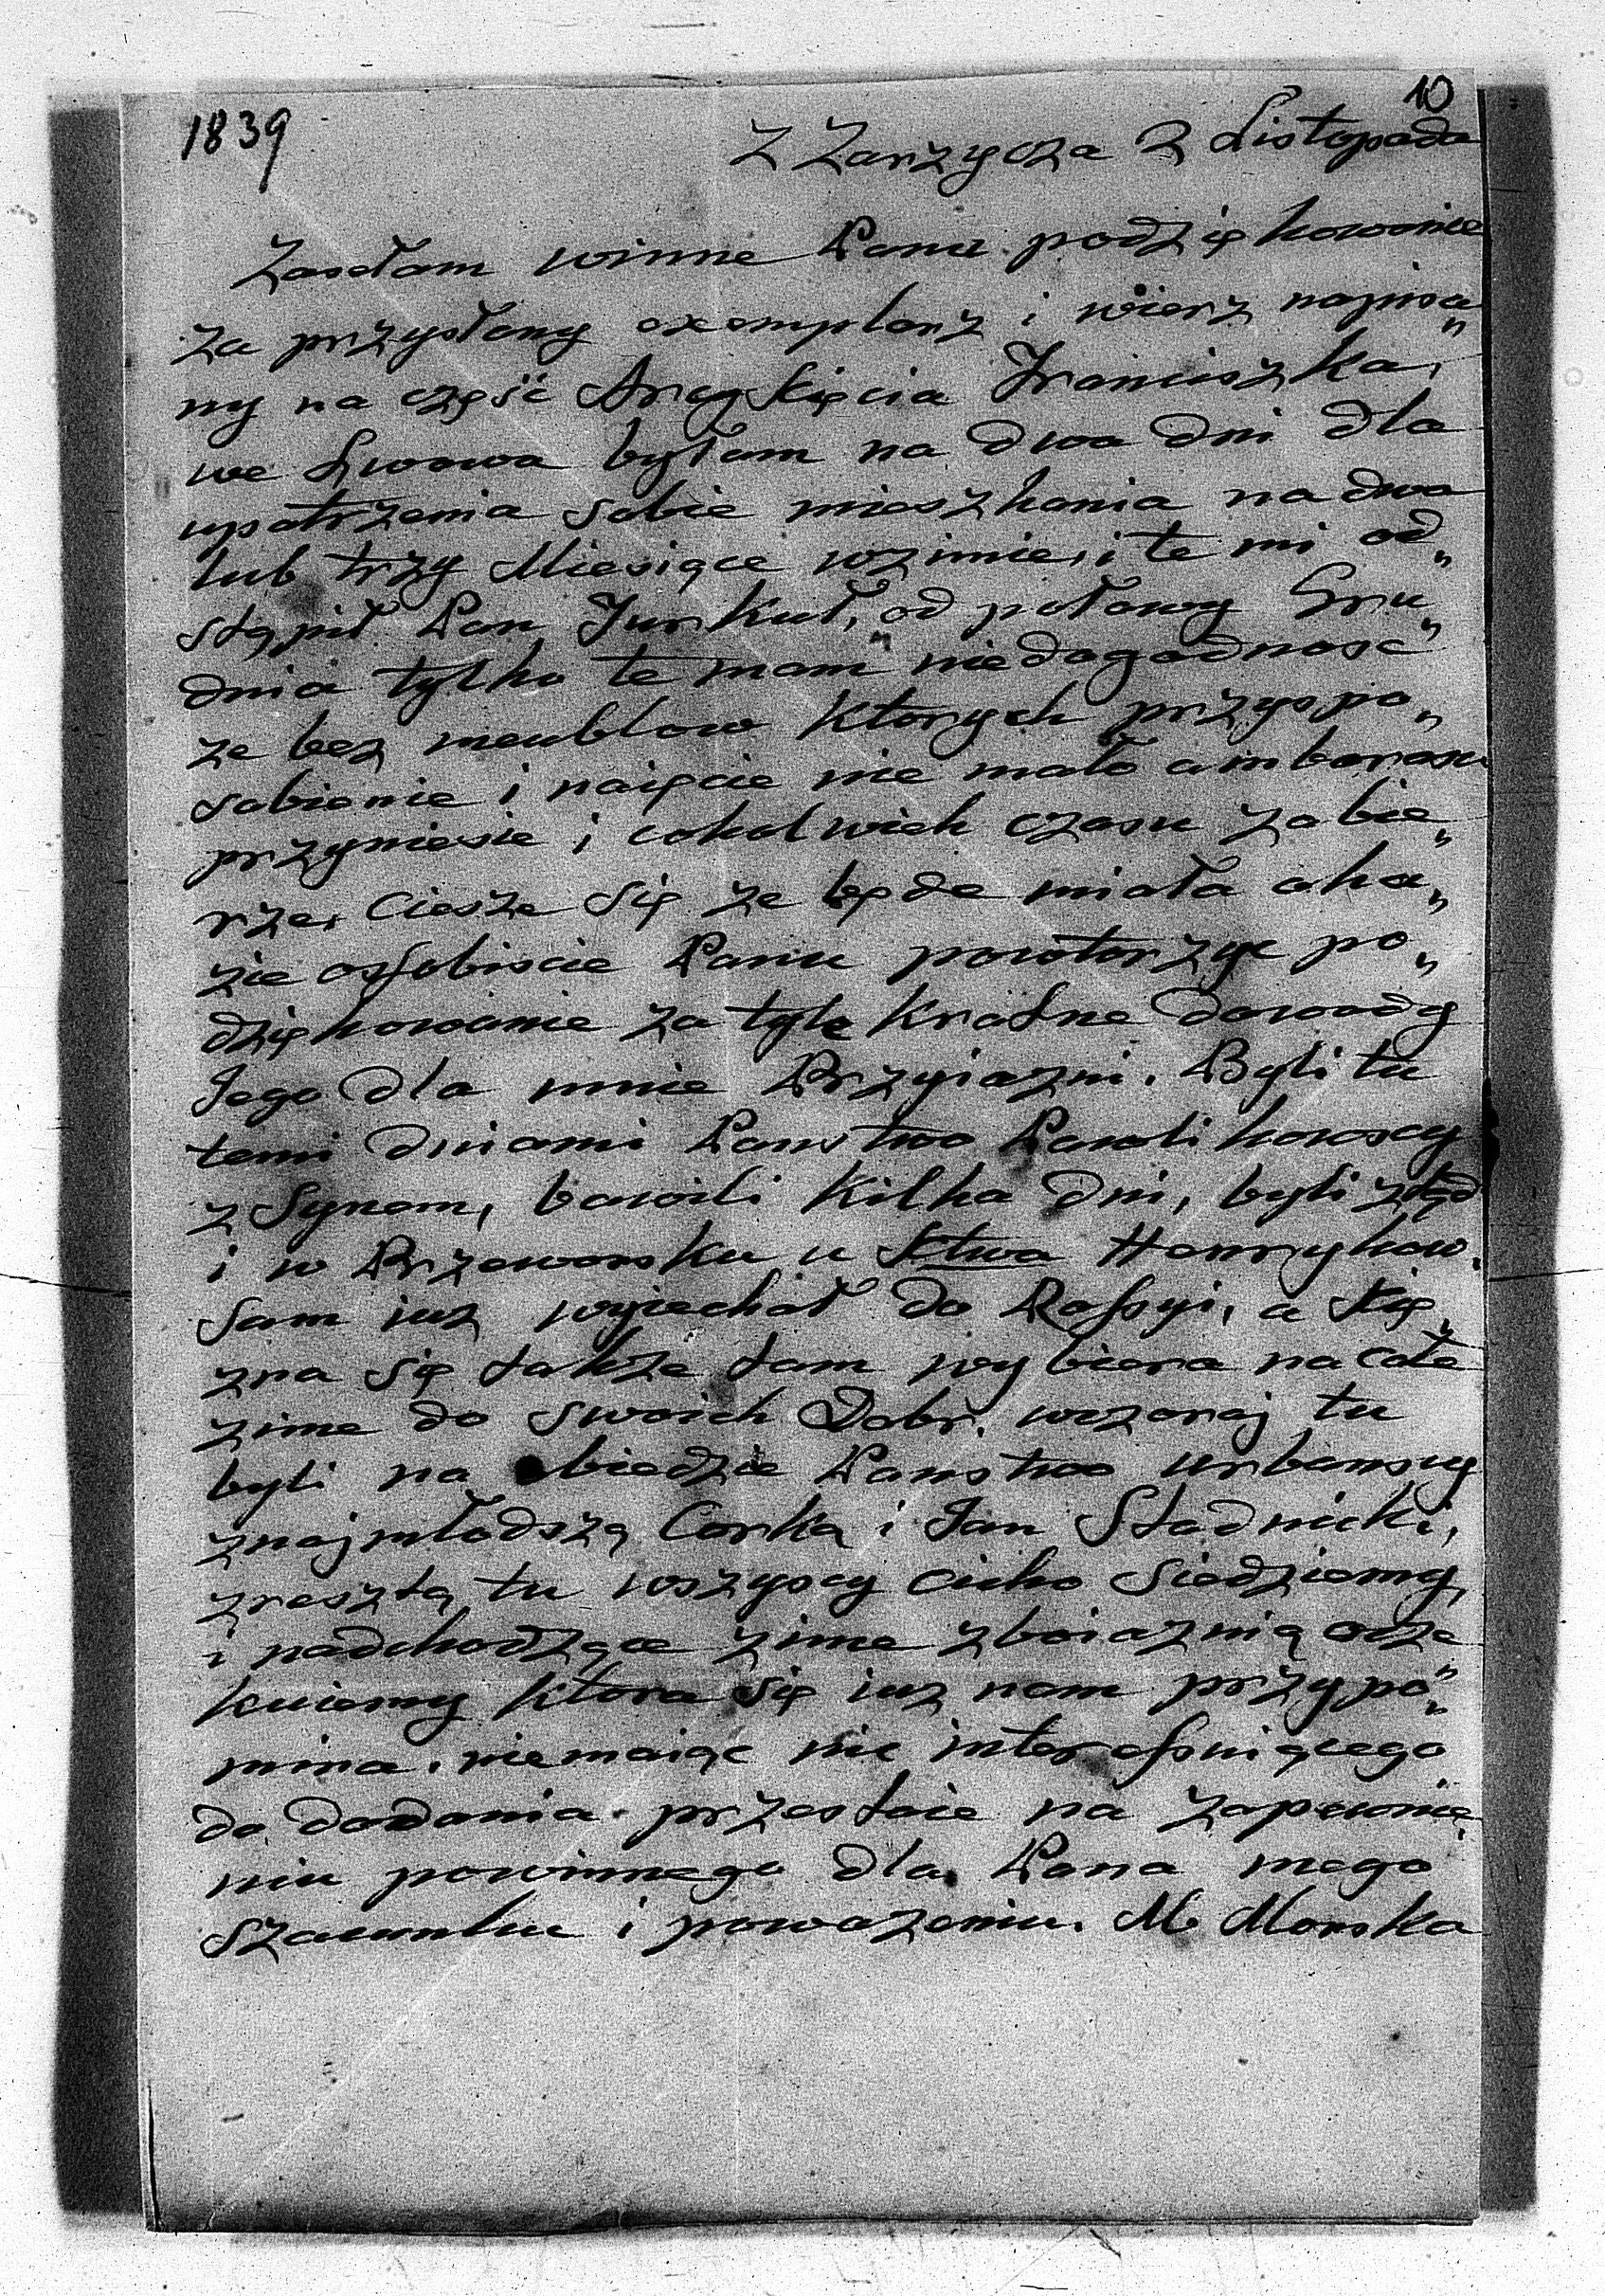 10
1839
Z Zarzycza 2 Listopada
Zasełam winne Panu podziękowanie
za przysłany exemplarz i wiersz napisa„
ny na część Arcy Xięcia Franciszka,
we Lwowa byłam na dwa dni dla
upatrzenia sobie mieszkania na dwa
lub trzy Miesiące wzimie, i te mi od„
stąpił Pan Jurkuł, od połowy Gru„
dnia tylko te mam niedogodnosć
ze bez meublow ktorych przyspo„
sobienie i naięcie nie mało ambarasu
przyniesie i cokolwiek czasu zabie„
rze, Ciesze się ze będe miała oka„
zie osobiscie Panu powtorzyc po„
dziękowanie za tyle kratne dowody
Jego dla mnie Przyiazni. Byli tu
temi dniami Panstwo Pawlikowscy
z Synem, bawili kilka dni, byli ztąd
i w Przeworsku u Xtwa Henrykow.
Sam iuz wyiechał do Rossyi, a Xię„
zna się takze tam wybiera na całe
zime do swoich Dobr, wczoraj tu
byli na obiedzie Panstwo Urbanscy
znajmłodszą Corką i Jan Stadnicki,
zresztą tu wszyscy cicho Siedziemy,
i nadchodzące zime zboiaznią ocze
kuiemy ktora się iuz nam przypo„
mina. niemaiąc nic interessuiącego
do dodania przestaie na zapewnie„
niu powinnego dla Pana mego
szacunku i powazeniu. M Morska